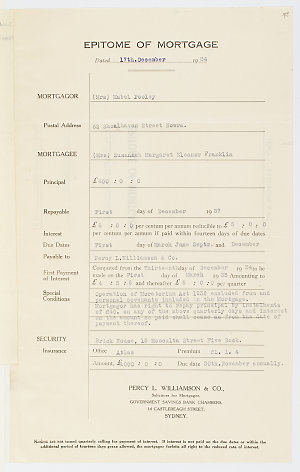 EPITOME OF MORTGAGE
Dated 17th. December 1934
MORTGAGOR (Mrs) Mabel Pooley
Postal Address 62 Shoalhaven Street Nowra.
MORTGAGEE (Mrs) Susannah Margaret Eleanor Franklin
Principal £400 : 0 : 0
Repayable First day of December 1937
£6 : 0 : 0 per centum per annum reducible to £5 : 0 : 0
Interest per centum per annum if paid within fourteen days of due dates
Due Dates First day of March June Septr. and December
Payable to Percy L. Williamson & Co.
Computed from the Thirteenth day of December 1934 to be
First Payment of Interest made on the First day of March 1935 Amounting to
£4 : 5 : 6 and thereafter £5 : 0 : 0 per quarter
Special Conditions Operation of Moratorium Act 1932 excluded from and
personal covenants included in the Mortgage.
Mortgagor has right to repay principal by instalments
of £40. on any of the above quarterly days and interest
on the amount so paid shall cease as from the date of
payment thereof.
SECURITY Brick House, 18 Street Five Dock.
Insurance Office Atlas Premium £1. 1. 4
Amount, £600 : 0 : 0 Due date 30th. November annually.
PERCY L. WILLIAMSON & CO.,
Solicitors for Mortgagee,
GOVERNMENT SAVINGS BANK CHAMBERS,
14 CASTLEREAGH STREET,
SYDNEY.
Notices are not issued quarterly calling for payment of interest. If interest is not paid on the due dates or within the
additional period of fourteen days grace allowed, the mortgagor forfeits all right to the reduced rate of interest.